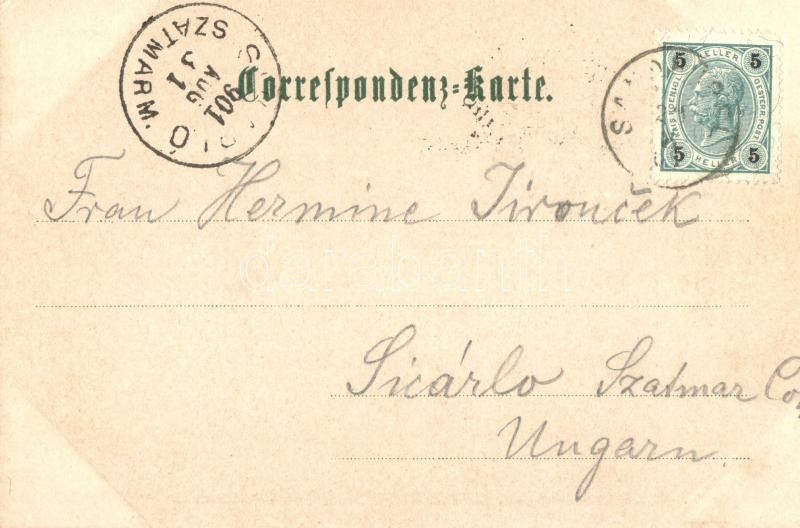 Correspondenz=Karte.
SZATMÁR M.
901
AUG
31
5 HELLER 5
OESTERR. POST
5 HELLER 5
Frau Hermine Jirouček
darabanth
Sicárlo Szatmar Com
Ungarn.